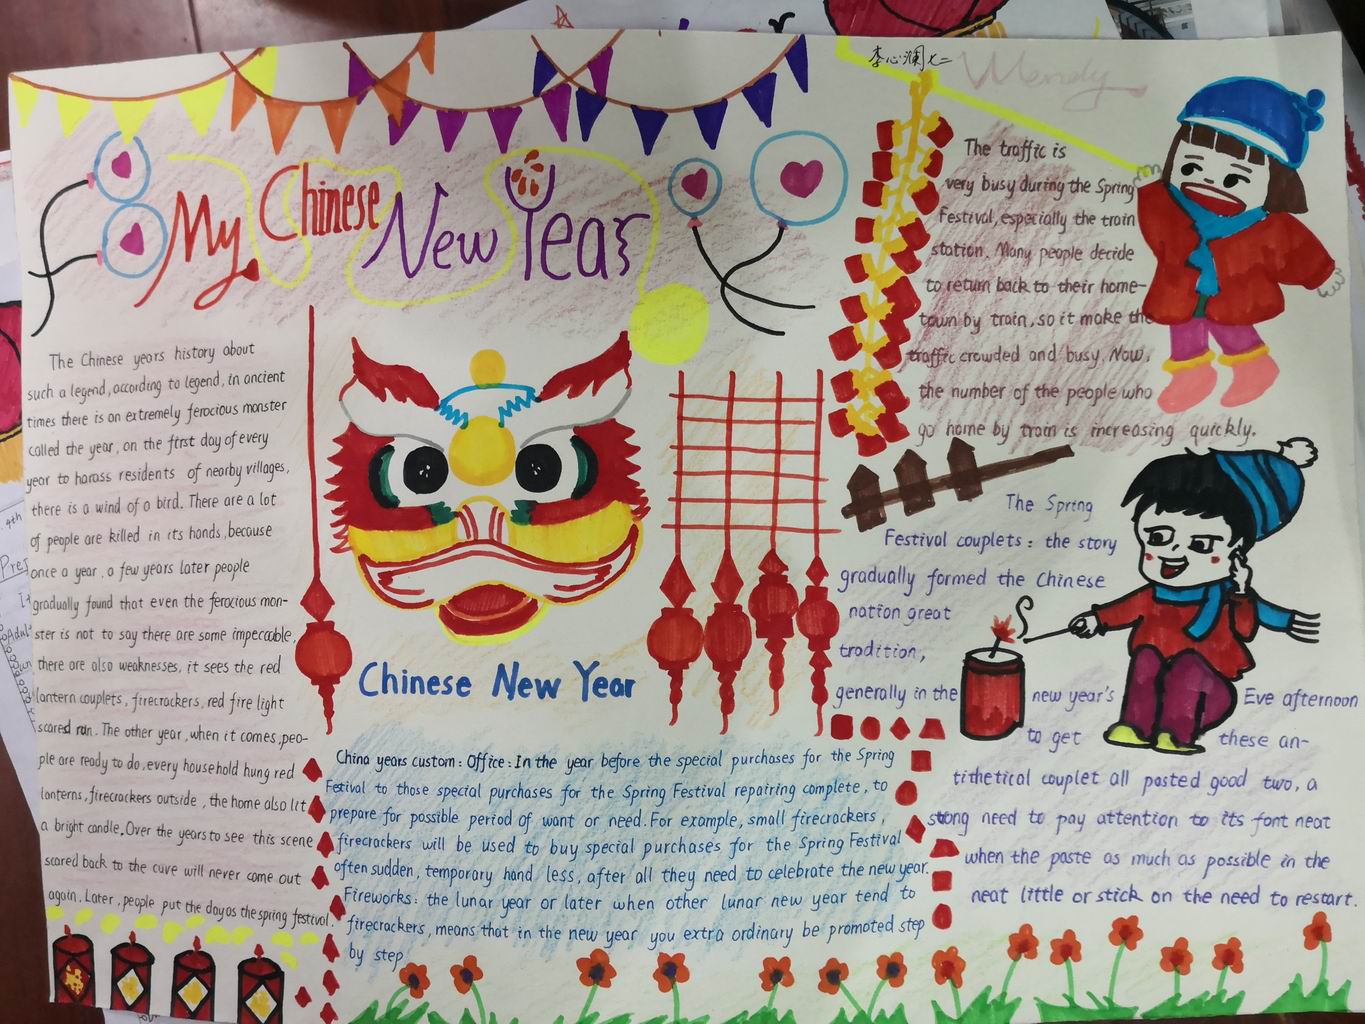 李心澜 七二
Wendy
My Chinese New Year
The Chinese years history about
such a legend, according to legend, in ancient
times there is an extremely ferocious monster
called the year, on the first day of every
year to harass residents of nearby villages,
there is a wind of a bird. There are a lot
of people are killed in its hands, because
once a year, a few years later people
gradually found that even the ferocious mon-
ster is not to say there are some impeccable,
there are also weaknesses, it sees the red
lantern couplets, firecrackers, red fire light
scared ran. The other year, when it comes, peo-
ple are ready to do, every household hung red
lanterns, firecrackers outside, the home also lit
a bright candle. Over the years to see this scene
scared back to the cave will never come out
again. Later, people put the day as the spring festival.
Chinese New Year
China years custom: Office: In the year before the special purchases for the Spring
Festival to those special purchases for the Spring Festival repairing complete, to
prepare for possible period of want or need. For example, small firecrackers,
firecrackers will be used to buy special purchases for the Spring Festival
often sudden, temporary hand less, after all they need to celebrate the new year.
Fireworks: the lunar year or later when other lunar new year tend to
firecrackers, means that in the new year you extra ordinary be promoted step
by step
The traffic is
very busy during the Spring
Festival, especially the train
station. Many people decide
to return back to their home-
town by train, so it make the
traffic crowded and busy. Now,
the number of the people who
go home by train is increasing quickly.
The Spring
Festival couplets: the story
gradually formed the Chinese
nation great
tradition,
generally in the new year's Eve afternoon
to get these an-
tithetical couplet all pasted good two, a
strong need to pay attention to its font neat
when the paste as much as possible in the
neat little or stick on the need to restart.